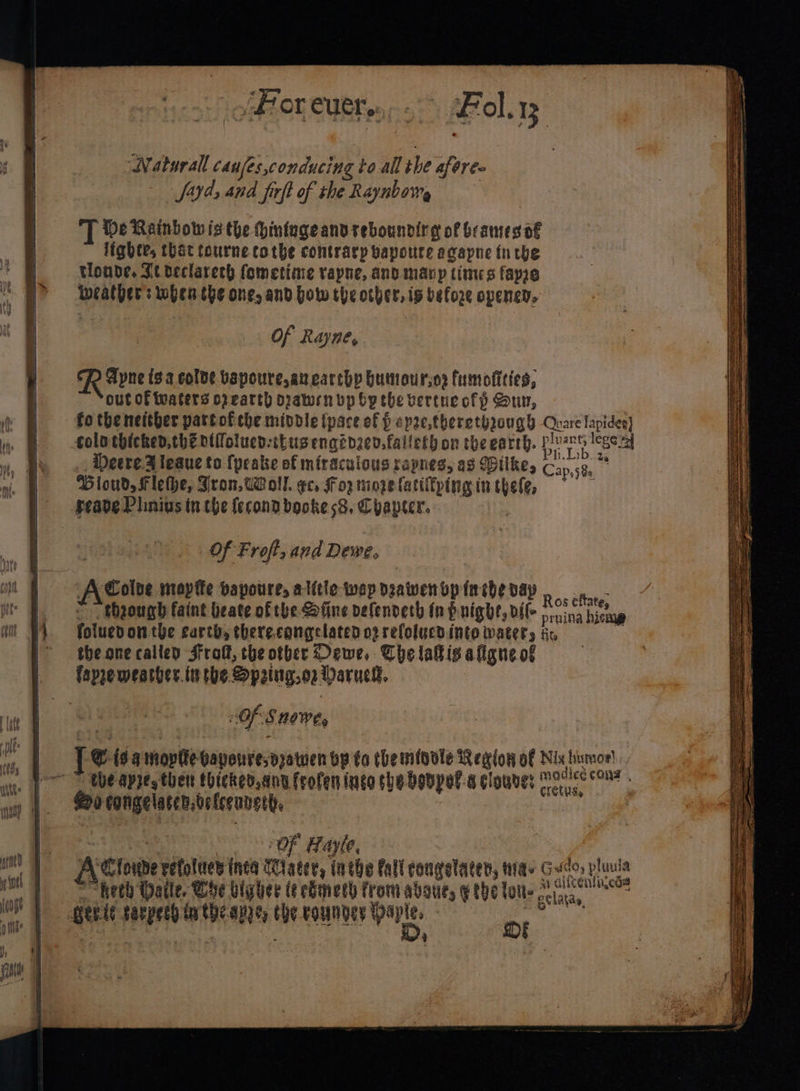 For euer. Fol. 13
Naturall causes, conducing to all the afore-
sayd, and first of the Raynbow,
THe Rainbow is the shininge and rebounding of beames of
lighte, that tourne to the contrary vapoure agayne in the
cloude. It declareth sometime rayne, and many times fayre
weather: when the one, and how the other, is before opened.
Of Rayne,
RAyne is a colde vapoure, an earthy humour, or fumosities,
out of waters or earth drawen vp by the vertue of þ Sun,
to the neither part of the middle space of þ ayre, there through
cold thicked, thẽ dissolued: thus engẽdred, falleth on the earth.
Quare lapides
pluant, lege
Pli. Lib. 2.
Cap. 58.
Heere I leaue to speake of miraculous raynes, as Milke,
Bloud, Fleshe, Iron, Woll. &c. For more satisfying in these,
reade Plinius in the second booke 58. Chapter.
Of Frost, and Dewe.
A Colde moyste vapoure, a little way drawen vp in the day
through faint heate of the Sunne descendeth in þ night, dis-
solued on the earth, there congelated or resolued into water,
the one called Frost, the other Dewe. The last is a signe of
fayre weather in the Spring, or Haruest.
Ros estate,
pruina hieme
fit,
Of Snowe,
IT is a moyste vapoure, drawen vp to the middle Region of
the ayre, then thicked, and frosen into the bodye of a cloude:
So congelated, descendeth.
Nix humor
modice con-
cretus,
Of Hayle,
A Cloude resolued into Water, in the fall congelated, ma-
keth Haile. The higher it cõmeth from aboue, & the lon-
ger it tarryeth in the ayre, the rounder Hayle.
Grãdo, pluuia
gelata,
D, Of